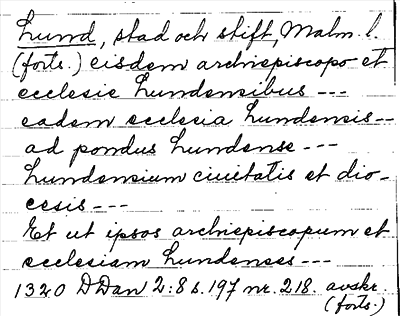 Lund, stad och stift, Malm. l.
(forts.) eisdem archiepiscopo et
ecclesie Lundensibus ---
eadem ecclesia Lundensis --
ad pondus Lundense ---
Lundensium ciuitatis et dio-
cesis ---
Et ut ipsos archiepiscopum et
ecclesiam Lundenses ---
1320 DDan 2:8 s. 197 nr. 218. avskr.
(forts.)